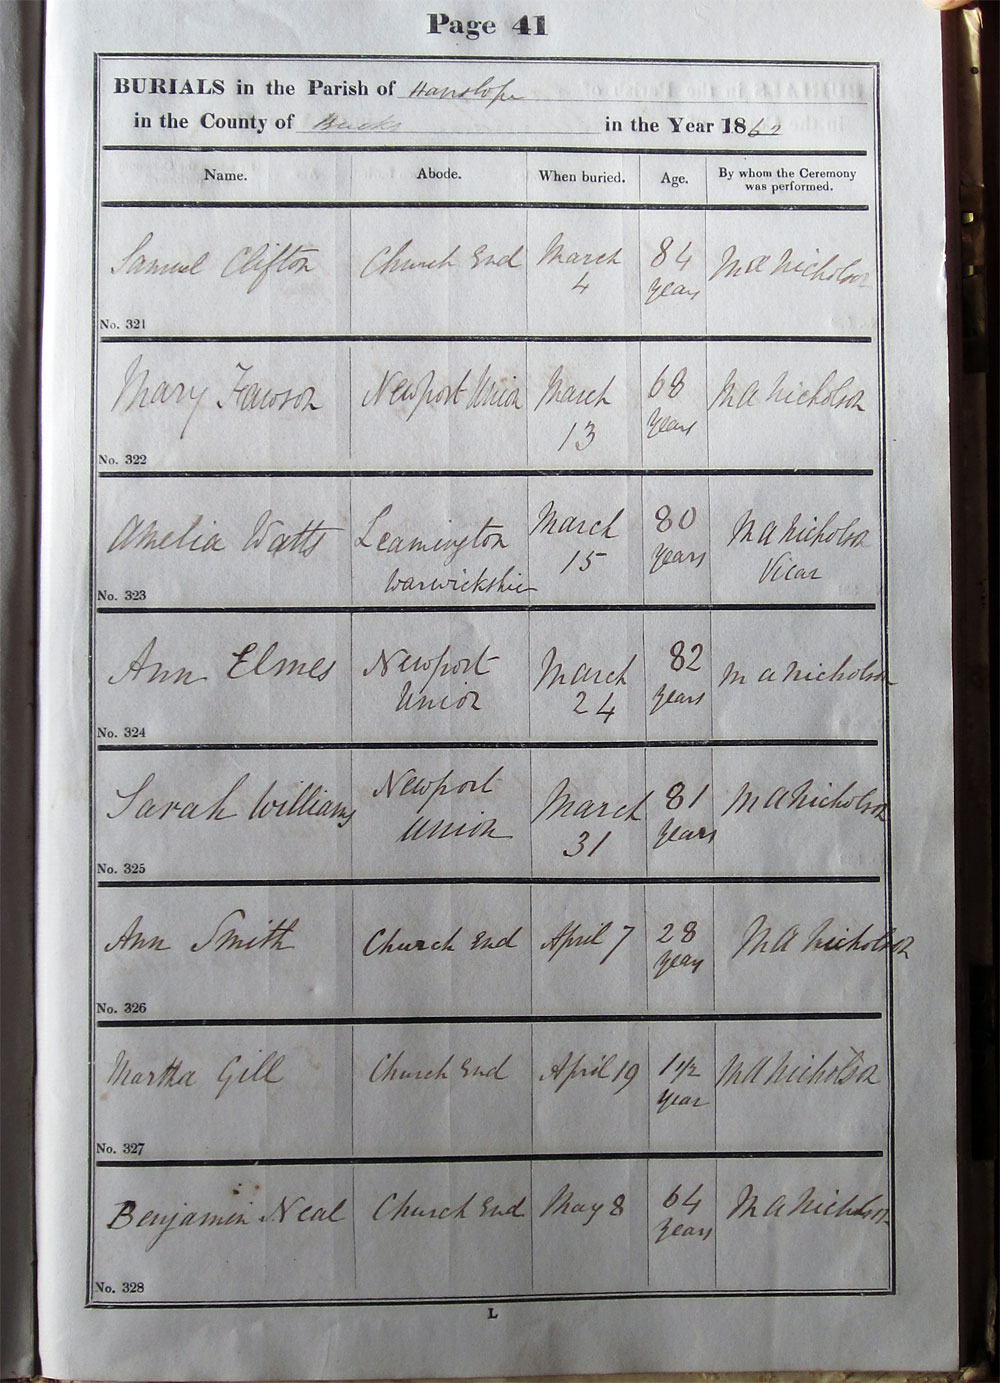 Page 41
BURIALS in the Parish of Hanslope
in the County of Bucks in the Year 1862
Name. Abode. When buried. Age. By whom the Ceremony was performed.
Samuel Clifton Church End March 4 84 years M A Nicholson
No. 321
Mary Fawson Newport Union March 13 68 years M A Nicholson
No. 322
Amelia Watts Leamington Warwickshire March 15 80 years M A Nicholson Vicar
No. 323
Ann Elmes Newport Union March 24 82 years M A Nicholson
No. 324
Sarah Williams Newport Union March 31 81 years M A Nicholson
No. 325
Ann Smith Church End April 7 28 years M A Nicholson
No. 326
Martha Gill Church End April 19 1 1/2 year M A Nicholson
No. 327
Benjamin Neal Church End May 8 64 years M A Nicholson
No. 328
L